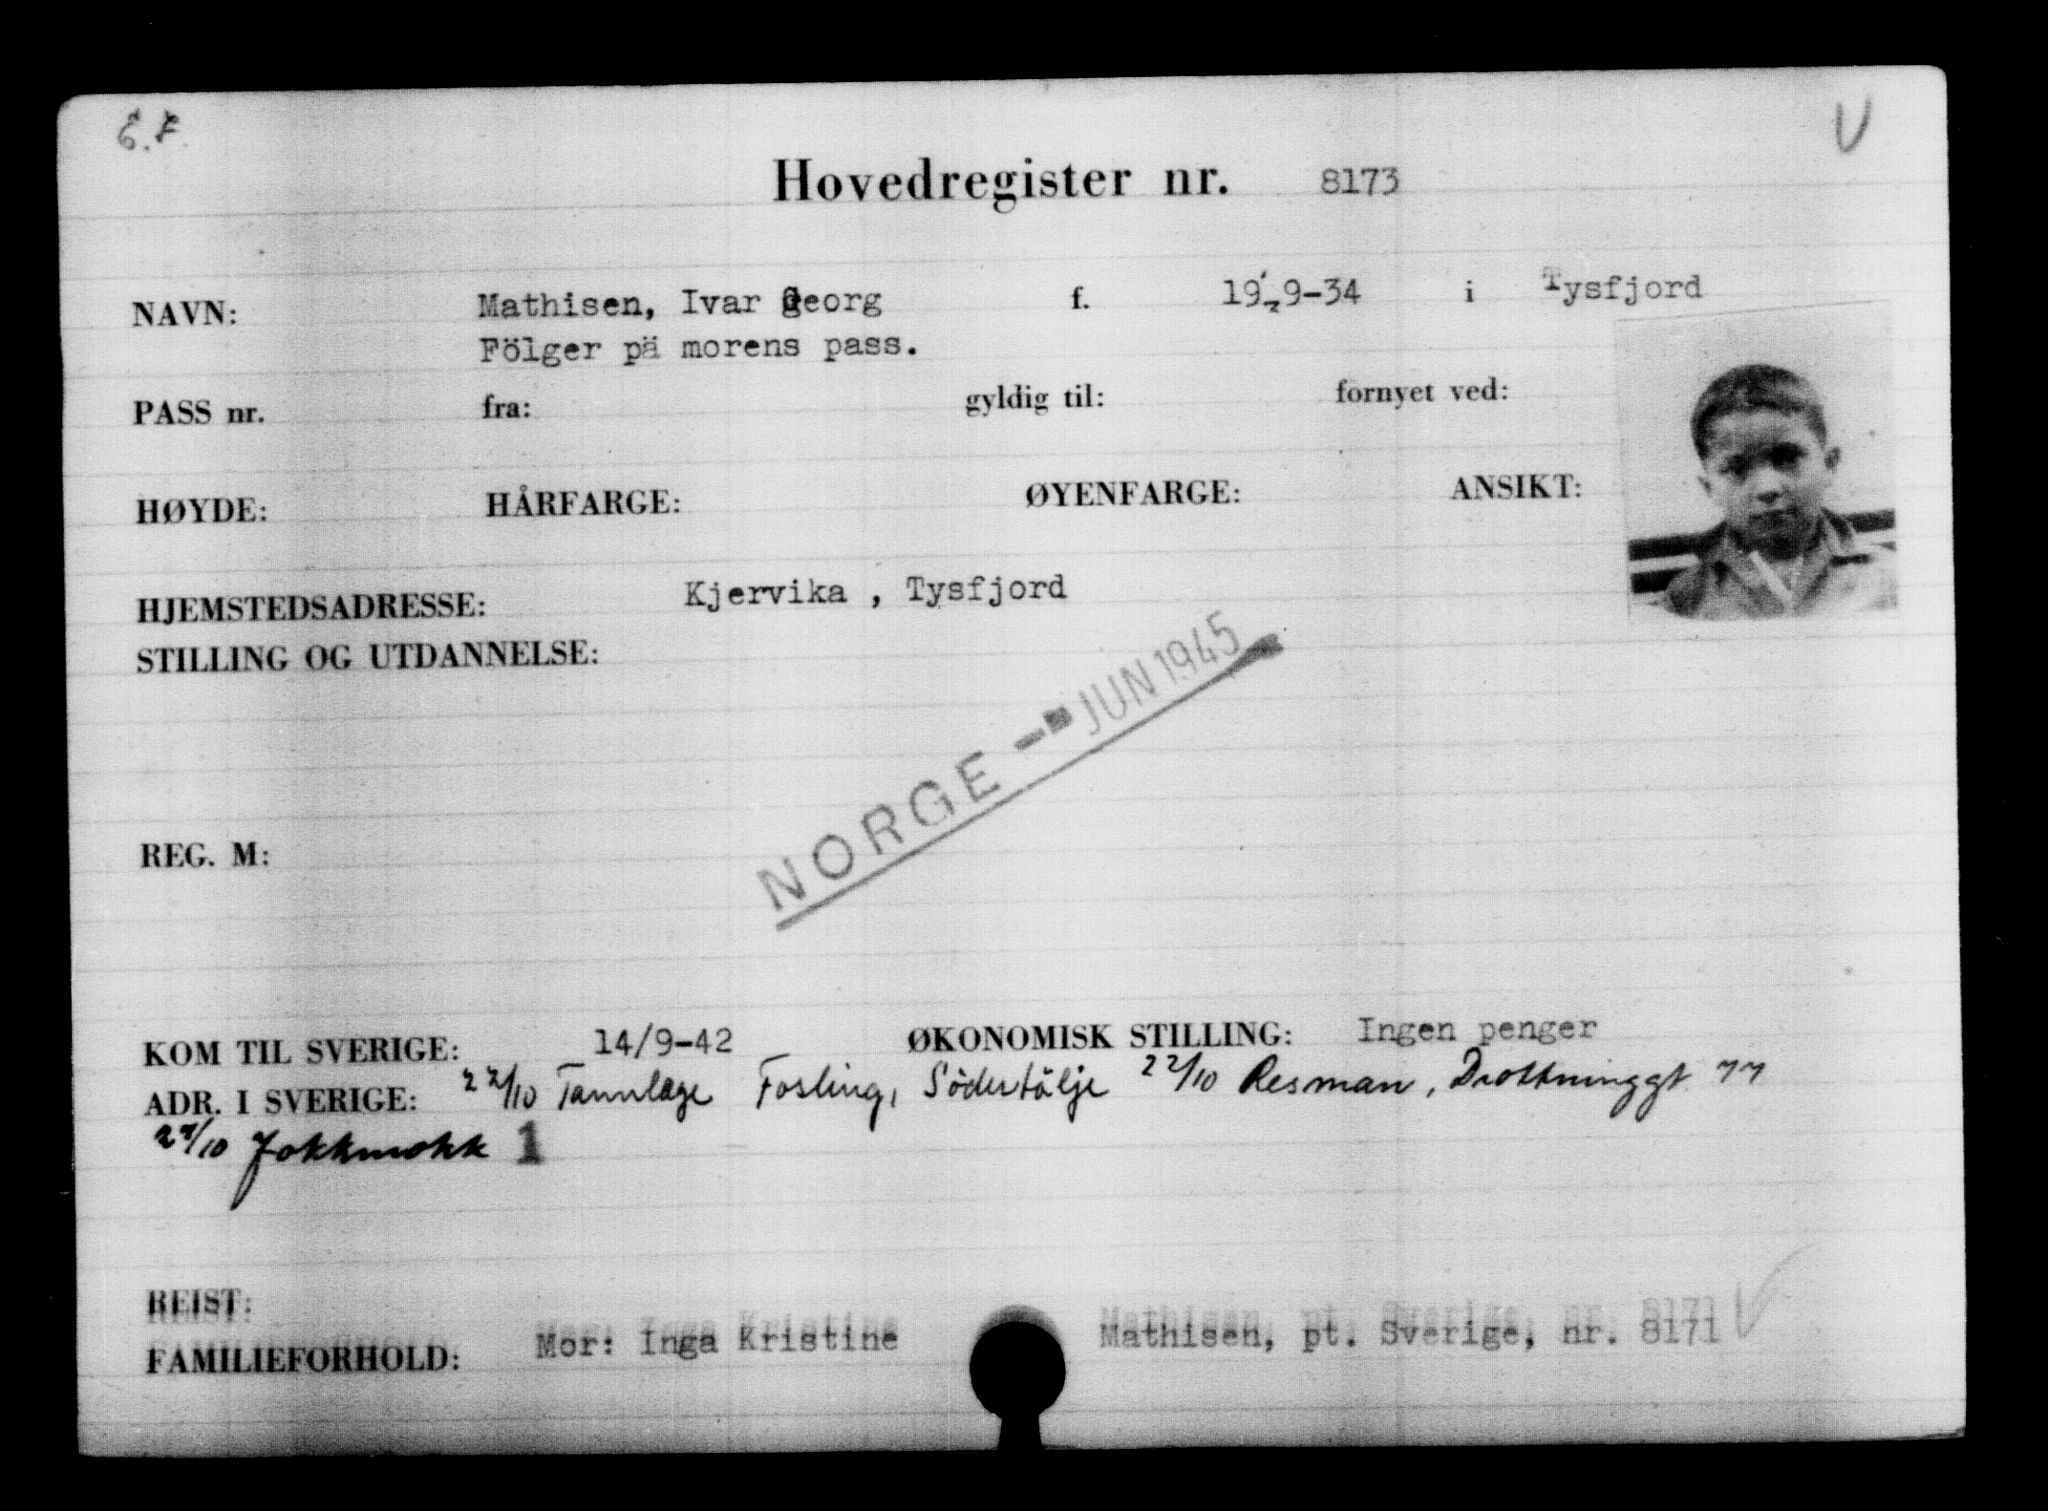 E.F.
V
Hovedregister nr. 8173
NAVN: Mathisen, Ivar Georg f. 19-9-34 i Tysfjord
Fölger pä morens pass.
PASS nr. fra: gyldig til: fornyet ved:
HØYDE: HÅRFARGE: ØYENFARGE: ANSIKT:
HJEMSTEDSADRESSE: Kjervika , Tysfjord
STILLING OG UTDANNELSE:
NORGE - JUN 1945
REG. M:
KOM TIL SVERIGE: 14/9-42 ØKONOMISK STILLING: Ingen penger
ADR. I SVERIGE: 22/10 Tannlæge Fosling, Södertälje 22/10 Resman, Drottninggt 77
27/10 Jokkmokk 1
REIST:
FAMILIEFORHOLD: Mor: Inga Kristine Mathisen, pt. Sverige, nr. 8171